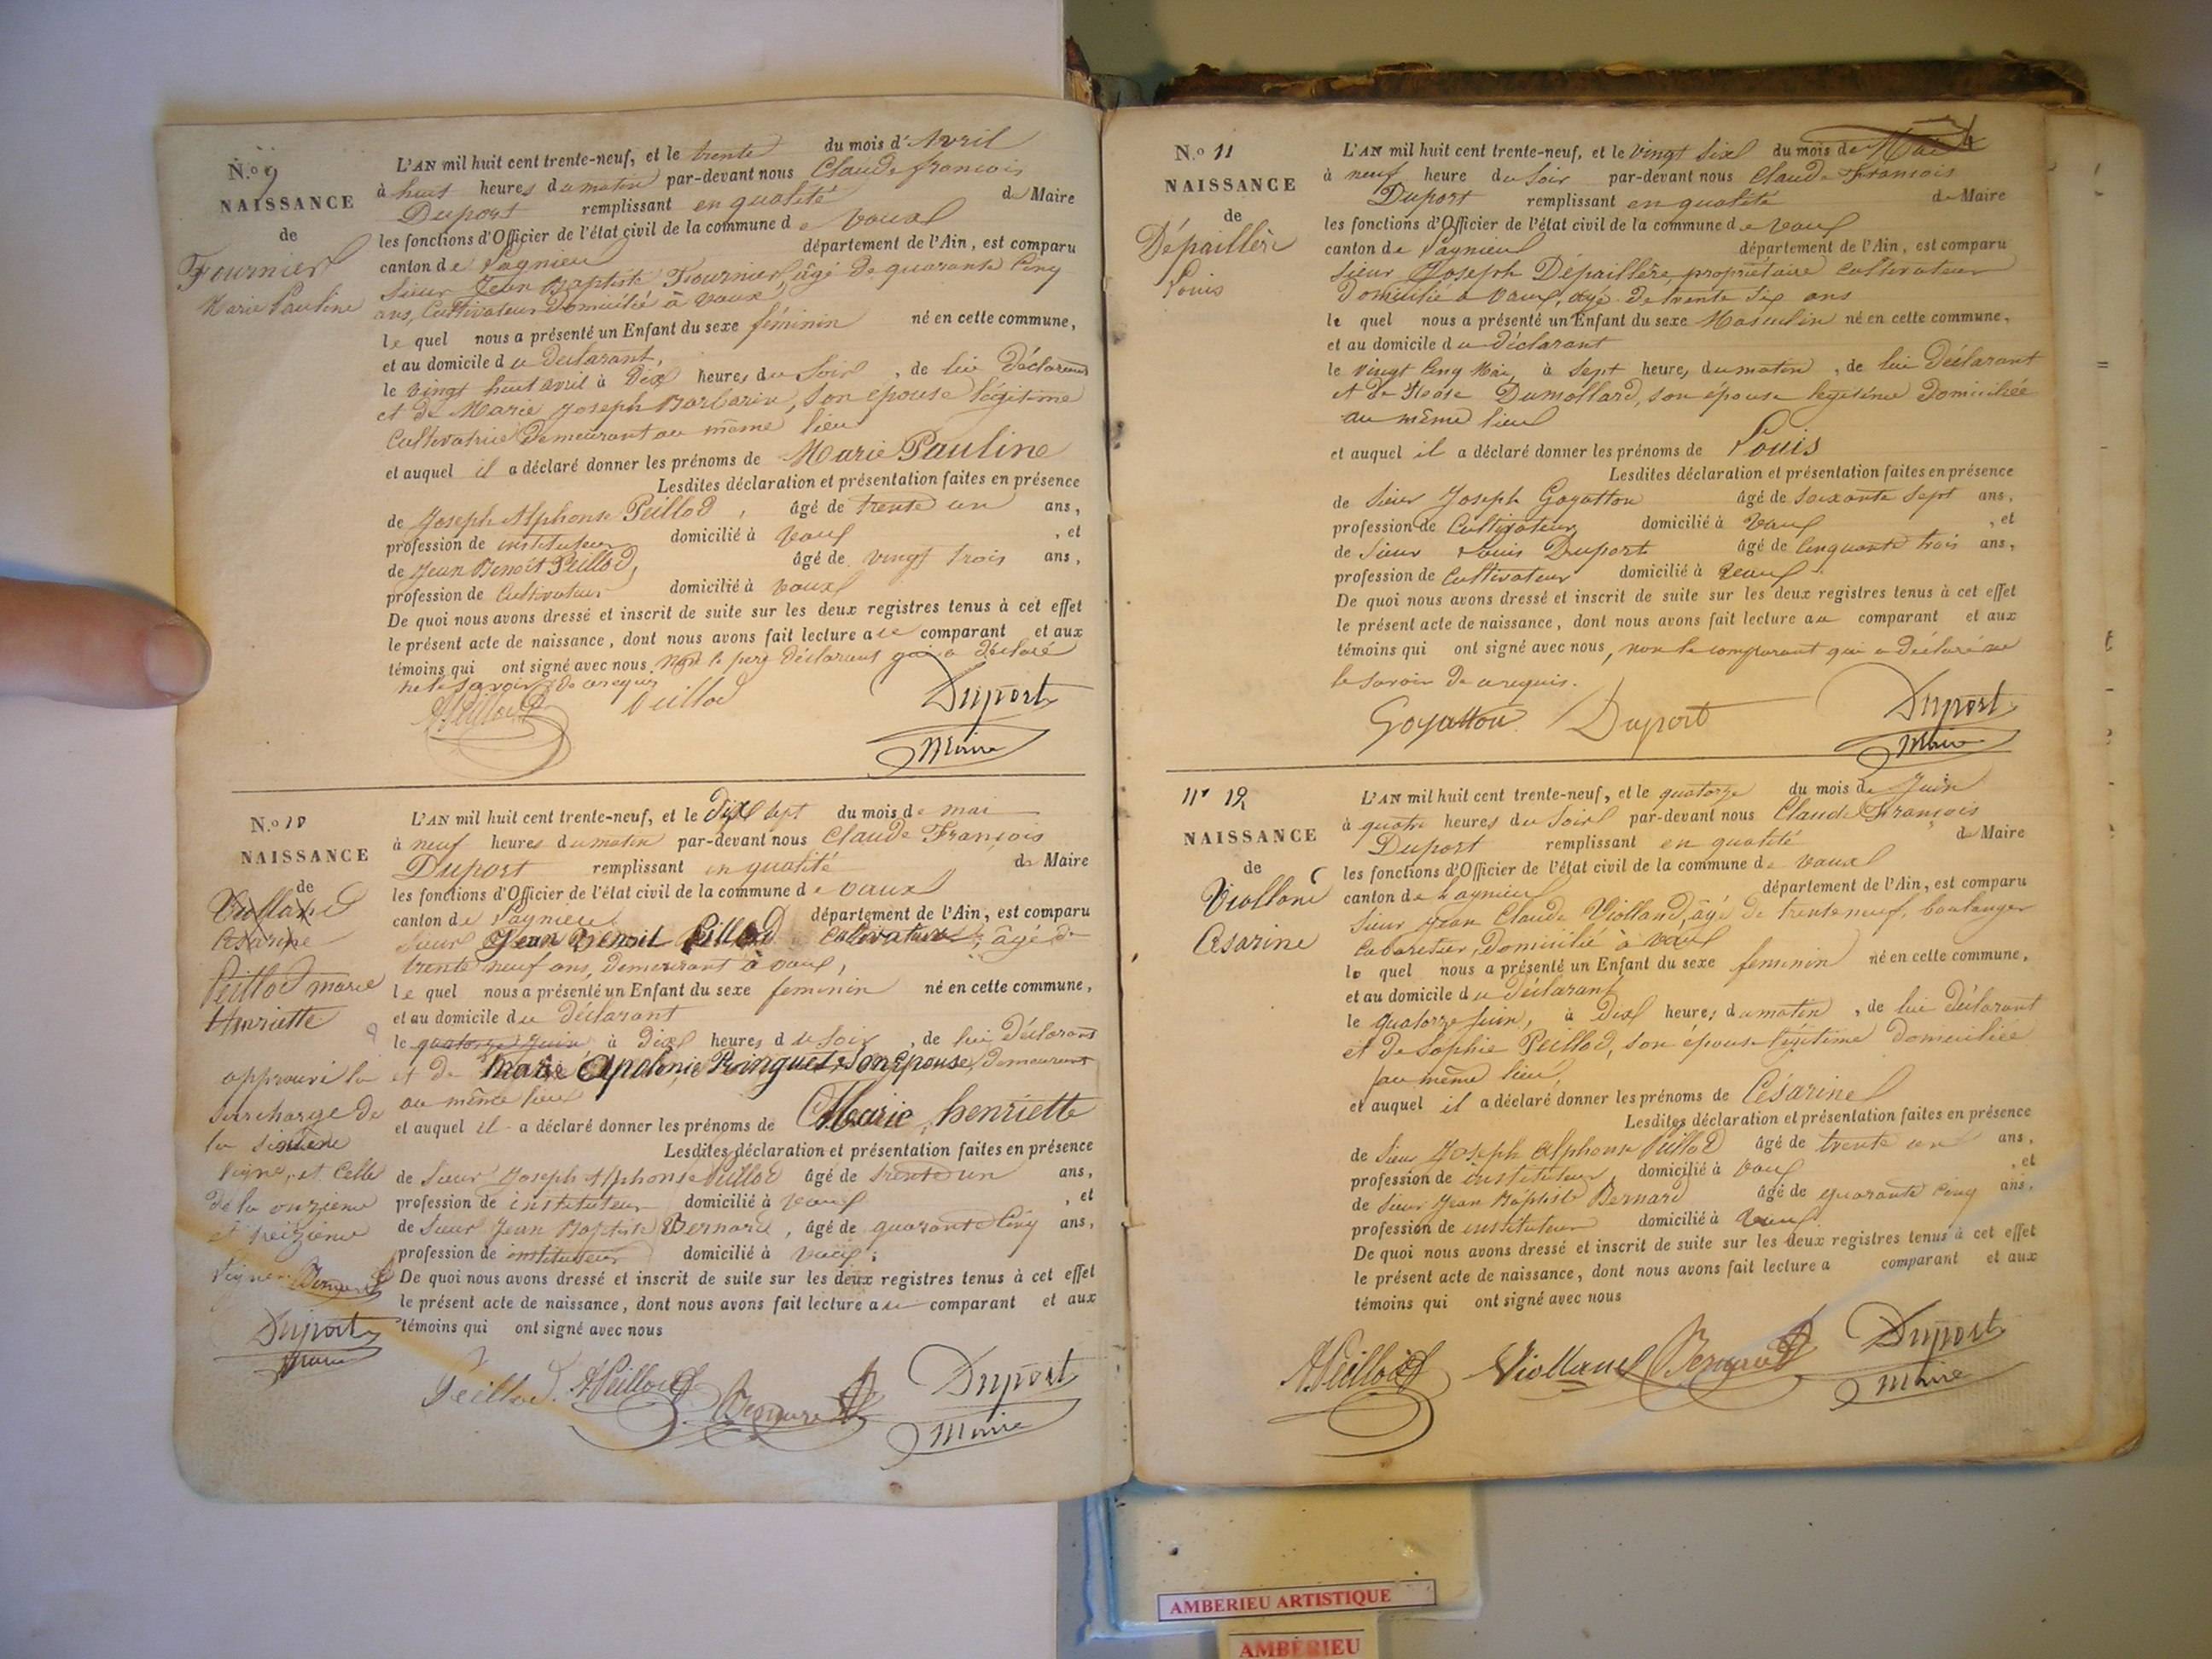 N.º 9
NAISSANCE
de
Fournier
Marie Pauline
L'AN mil huit cent trente-neuf, et le trente du mois d'Avril
à huit heures du matin par-devant nous Claude françois
Duport remplissant en qualité de Maire
les fonctions d'Officier de l'état civil de la commune de Vaux
canton de Lagnieu département de l'Ain, est comparu
sieur Jean Baptiste Fournier, âgé de quarante cinq
ans, Cultivateur Domicilié à Vaux
le quel nous a présenté un Enfant du sexe féminin né en cette commune,
et au domicile du declarant,
le vingt huit avril à Dix heures du Soir, de lui Déclarant
et de Marie Joseph Barbarin, son épouse légitime
Cultivatrice Demeurant au même lieu
et auquel il a déclaré donner les prénoms de Marie Pauline
Lesdites déclaration et présentation faites en présence
de Joseph Alphonse Peillod, âgé de trente un ans,
profession de instituteur domicilié à Vaux, et
de Jean Benoit Peillod, âgé de vingt trois ans,
profession de Cultivateur domicilié à Vaux
De quoi nous avons dressé et inscrit de suite sur les deux registres tenus à cet effet
le présent acte de naissance, dont nous avons fait lecture au comparant et aux
témoins qui ont signé avec nous, non le père Déclarant qui a déclaré
ne le savoir de ce requis
APeillod Peillod Duport
Maire
N.º 10
NAISSANCE
de
Violland
Césarine
Peillod marie
Henriette
approuvé la
surcharge de
la sixième
ligne, et celle
de la onzième
et treizième
lignes Bernard
Duport
Maire
L'AN mil huit cent trente-neuf, et le Dix sept du mois de mai
à neuf heures du matin par-devant nous Claude François
Duport remplissant en qualité de Maire
les fonctions d'Officier de l'état civil de la commune de Vaux
canton de Lagnieu département de l'Ain, est comparu
sieur Jean Benoit Peillod Cultivateur, âgé de
trente neuf ans, demeurant à Vaux,
le quel nous a présenté un Enfant du sexe féminin né en cette commune,
et au domicile du déclarant
le quatorze juin à Dix heures du Soir, de lui Déclarant
et de Marie Apolonie Ringuet, son Epouse, demeurant
au même lieu
et auquel il a déclaré donner les prénoms de Marie henriette
Lesdites déclaration et présentation faites en présence
de Sieur Joseph Alphonse Peillod âgé de trente un ans,
profession de instituteur domicilié à Vaux, et
de Sieur Jean Baptiste Bernard, âgé de quarante Cinq ans,
profession de instituteur domicilié à Vaux;
De quoi nous avons dressé et inscrit de suite sur les deux registres tenus à cet effet
le présent acte de naissance, dont nous avons fait lecture au comparant et aux
témoins qui ont signé avec nous
Peillod. APeillod Bernard Duport
Maire
N.º 11
NAISSANCE
de
Dépaillère
Louis
L'AN mil huit cent trente-neuf, et le Vingt Six du mois de Mai
à neuf heure du Soir par-devant nous Claude François
Duport remplissant en qualité de Maire
les fonctions d'Officier de l'état civil de la commune de Vaux
canton de Lagnieu département de l'Ain, est comparu
Sieur Joseph Dépaillère, propriétaire Cultivateur
Domicilié à Vaux, âgé de trente six ans
le quel nous a présenté un Enfant du sexe Masculin né en cette commune,
et au domicile du déclarant
le vingt Cinq Mai, à Sept heures du matin, de lui Déclarant
et de Dumollard, son épouse légitime Domiciliée
au même lieu
et auquel il a déclaré donner les prénoms de Louis
Lesdites déclaration et présentation faites en présence
de Sieur Joseph Goyatton âgé de soixante Sept ans,
profession de Cultivateur domicilié à Vaux, et
de Sieur Louis Duport âgé de Cinquante trois ans,
profession de Cultivateur domicilié à Vaux.
De quoi nous avons dressé et inscrit de suite sur les deux registres tenus à cet effet
le présent acte de naissance, dont nous avons fait lecture au comparant et aux
témoins qui ont signé avec nous, non le comparant qui a déclaré ne
le savoir de ce requis.
Goyatton Duport Duport
Maire
Nº 12
NAISSANCE
de
Violland
Césarine
L'AN mil huit cent trente-neuf, et le quatorze du mois de Juin
à quatre heures du Soir par-devant nous Claude François
Duport remplissant en qualité de Maire
les fonctions d'Officier de l'état civil de la commune de Vaux
canton de Lagnieu département de l'Ain, est comparu
Sieur Jean Claude Violland, âgé de trente neuf, boulanger
Cabaretier, Domicilié à Vaux
le quel nous a présenté un Enfant du sexe feminin né en cette commune,
et au domicile du Déclarant
le quatorze Juin, à Dix heures du matin, de lui déclarant
et de Sophie Peillod, son épouse légitime Domiciliée
au même lieu,
et auquel il a déclaré donner les prénoms de Césarine
Lesdites déclaration et présentation faites en présence
de Sieur Joseph Alphonse Peillod âgé de trente un ans,
profession de instituteur domicilié à Vaux, et
de Sieur Jean Baptiste Bernard âgé de quarante Cinq ans,
profession de instituteur domicilié à Vaux
De quoi nous avons dressé et inscrit de suite sur les deux registres tenus à cet effet
le présent acte de naissance, dont nous avons fait lecture a comparant et aux
témoins qui ont signé avec nous
APeillod Violland Bernard Duport
Maire
AMBERIEU ARTISTIQUE
AMBÉRIEU